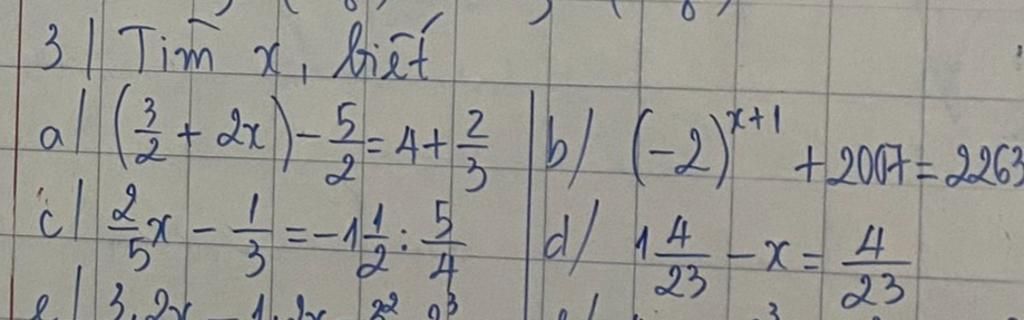 3/ Tìm x, biết
a/ (3/2 + 2x) - 5/2 = 4 + 2/3
b/ (-2)^(x+1) + 2007 = 2263
c/ 2/5 x - 1/3 = -1 1/2 : 5/4
d/ 1 4/23 - x = 4/23